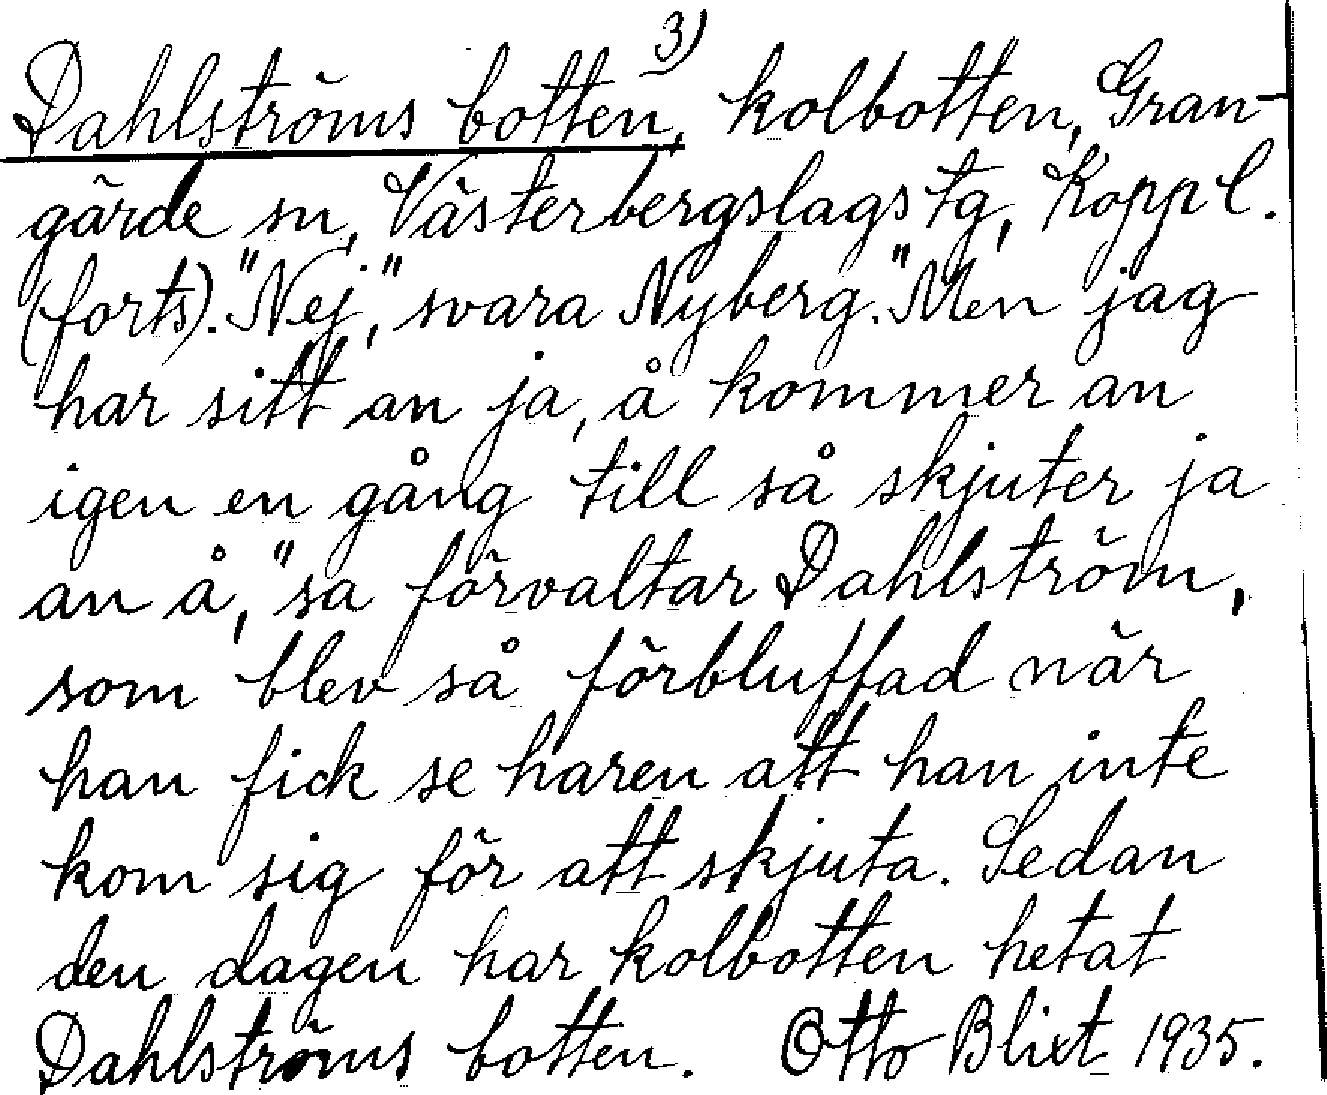 3)
Dahlströms botten, kolbotten, Gran-
gärde sn, Västerbergslags tg, Koppl.
(forts). "Nej," svara Nyberg. "Men jag
har sitt an ja, å kommer an
igen en gång till så skjuter ja
an å," sa förvaltar Dahlström,
som blev så förbluffad när
han fick se haren att han inte
kom sig för att skjuta. Sedan
den dagen har kolbotten hetat
Dahlströms botten. Otto Blixt 1935.